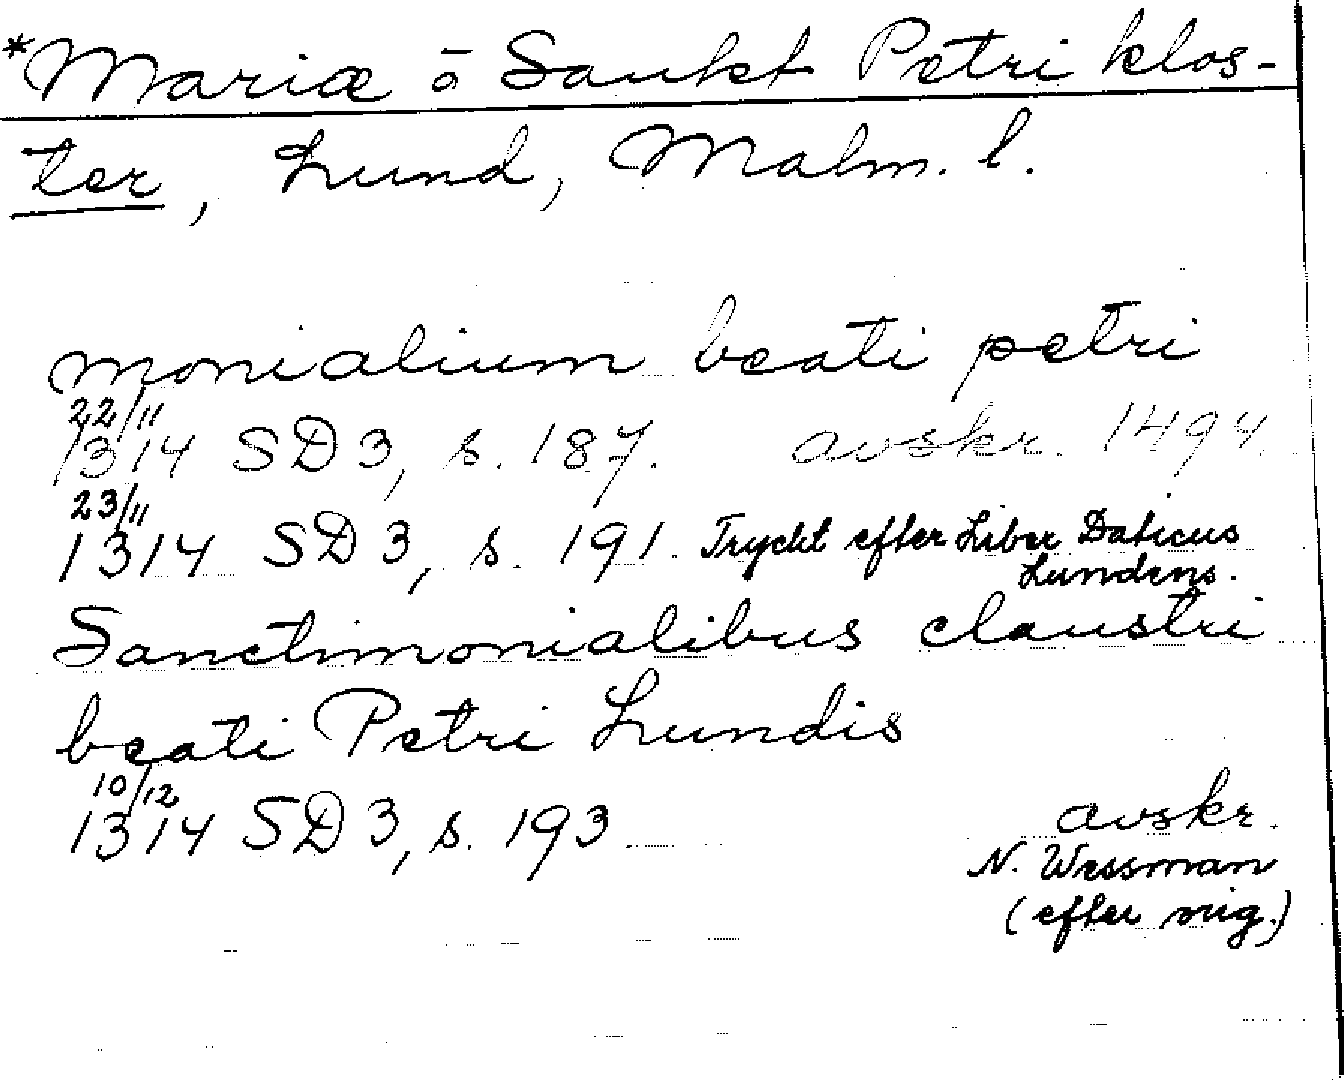 *Mariæ o Sankt Petri klos-
ter, Lund, Malm. l.
monialium beati petri
22/11
1314 SD 3, s. 187. avskr. 1494.
23/11
1314 SD 3, s. 191. Tryckt efter Liber Daticus
Lundens.
Sanctimonialibus claustri
beati Petri Lundis
10/12
1314 SD 3, s. 193 avskr.
N. Wessman
(efter orig.)